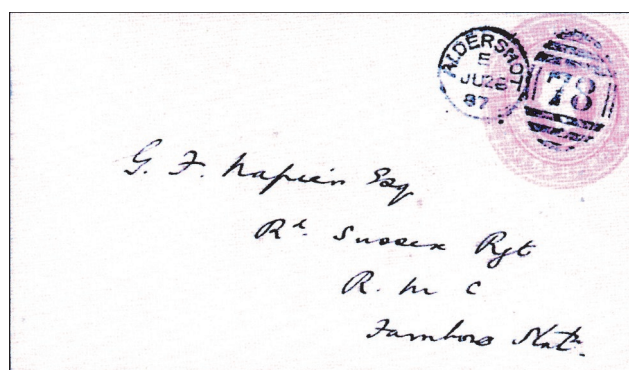 ALDERSHOT
E
JU 2
87
78
G. F. Napier Esq
Rl. Sussex Rgt
R. M C
Farnboro Statn.